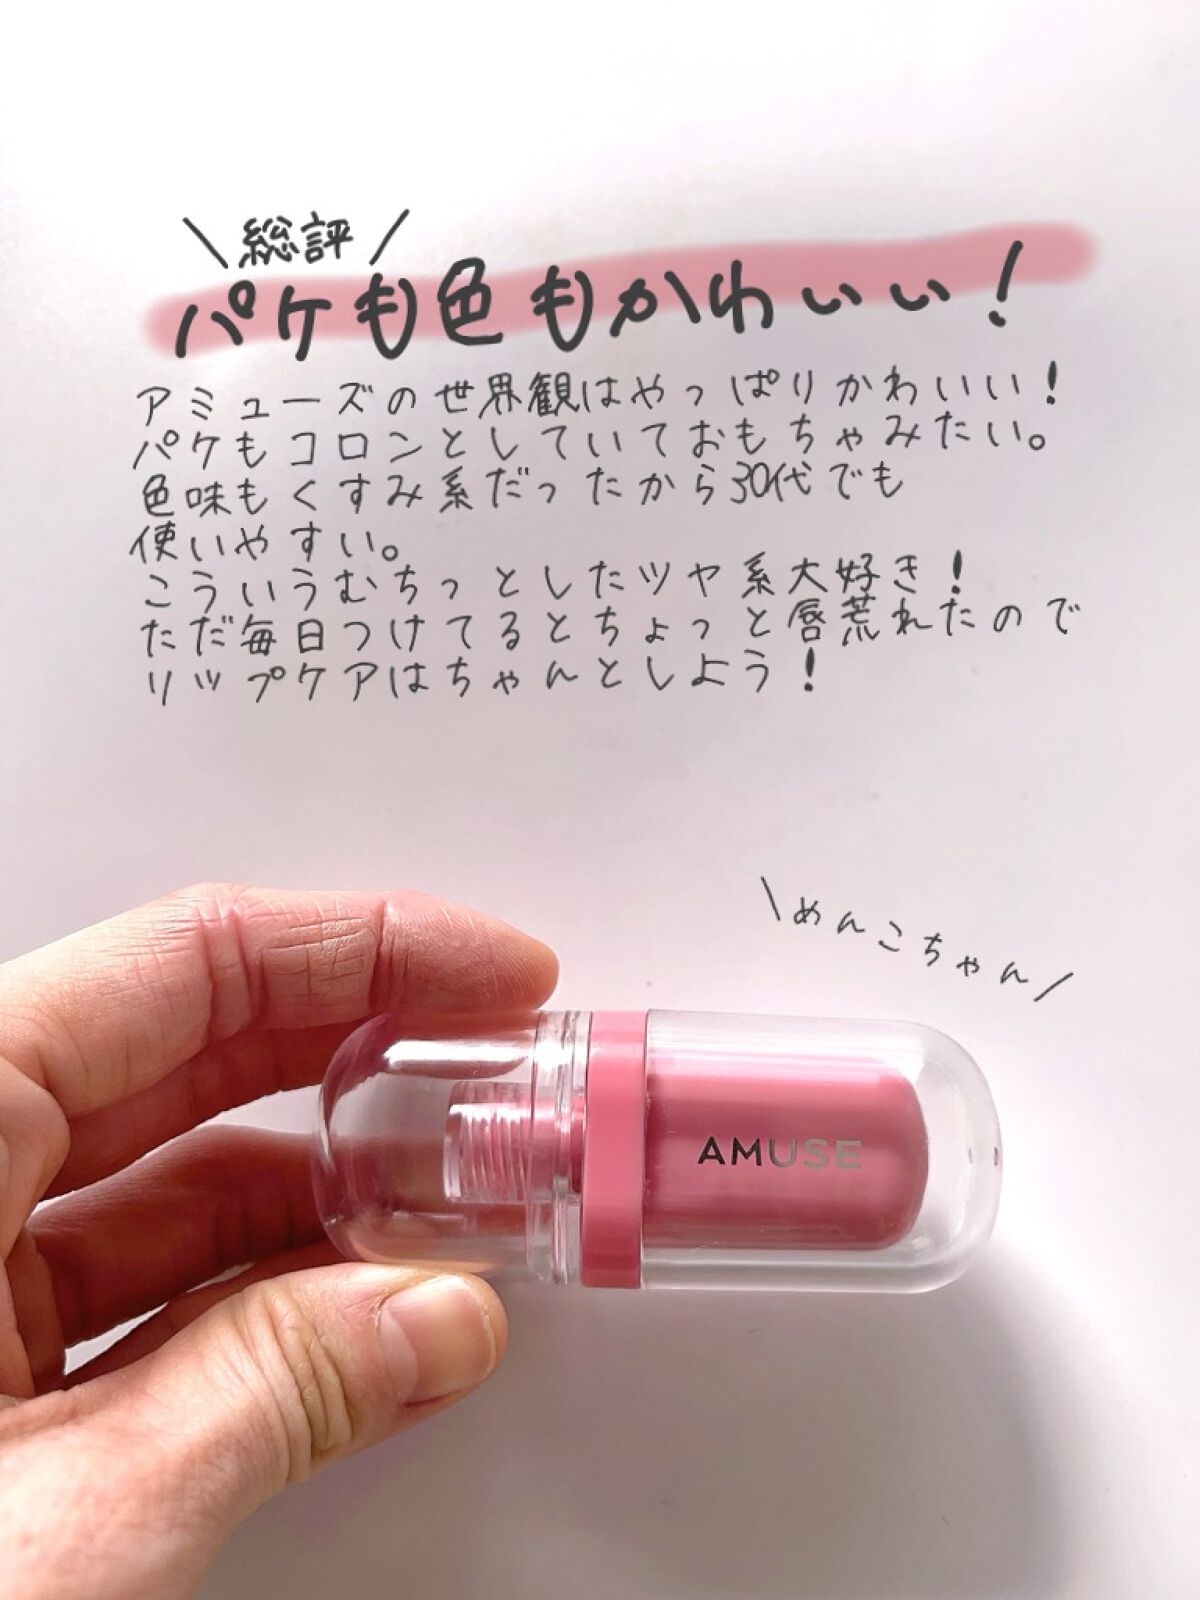 \総評/
パケも色もかわいい！
アミューズの世界観はやっぱりかわいい！
パケもコロンとしていておもちゃみたい。
色味もくすみ系だったから30代でも
使いやすい。
こういうむちっとしたツヤ系大好き！
ただ毎日つけてるとちょっと唇荒れたので
リップケアはちゃんとしよう！
\めんこちゃん/
AMUSE